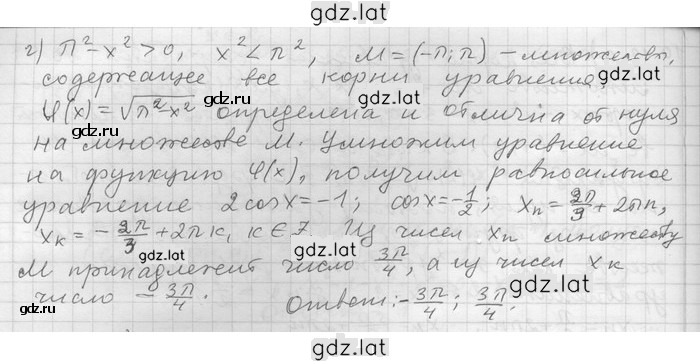 gdz.lat
г) π² − x² > 0, x² < π², M = (−π; π) − множество,
содержащее все корни уравнения.
gdz.lat gdz.lat
φ(x) = √(π² − x²) определена и отлична от нуля
gdz.lat
на множестве M. Умножим уравнение
на функцию φ(x), получим равносильное
gdz.lat
уравнение 2cosx = −1; cosx = −1/2; xₙ = 2π/3 + 2πn,
xₖ = −2π/3 + 2πk, k ∈ Z. Из чисел xₙ множеству
gdz.lat gdz.lat
M принадлежит число 3π/4, а из чисел xₖ
число − 3π/4. Ответ: −3π/4; 3π/4.
gdz.lat gdz.lat
gdz.lat